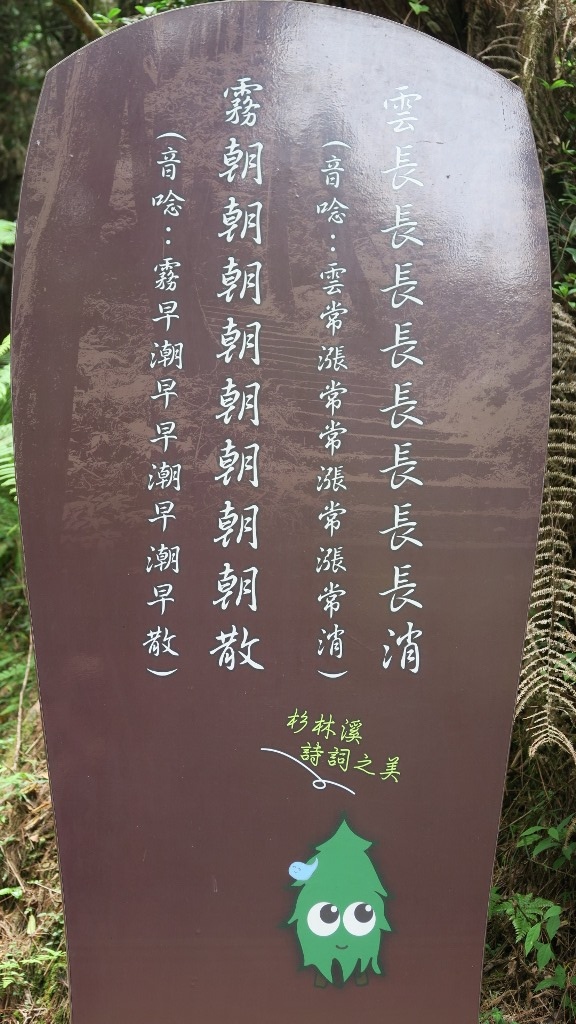 雲長長長長長長長長消
(音唸:雲常漲常常漲常漲常消)
霧朝朝朝朝朝朝朝朝散
(音唸:霧早潮早早潮早潮早散)
杉林溪
詩詞之美